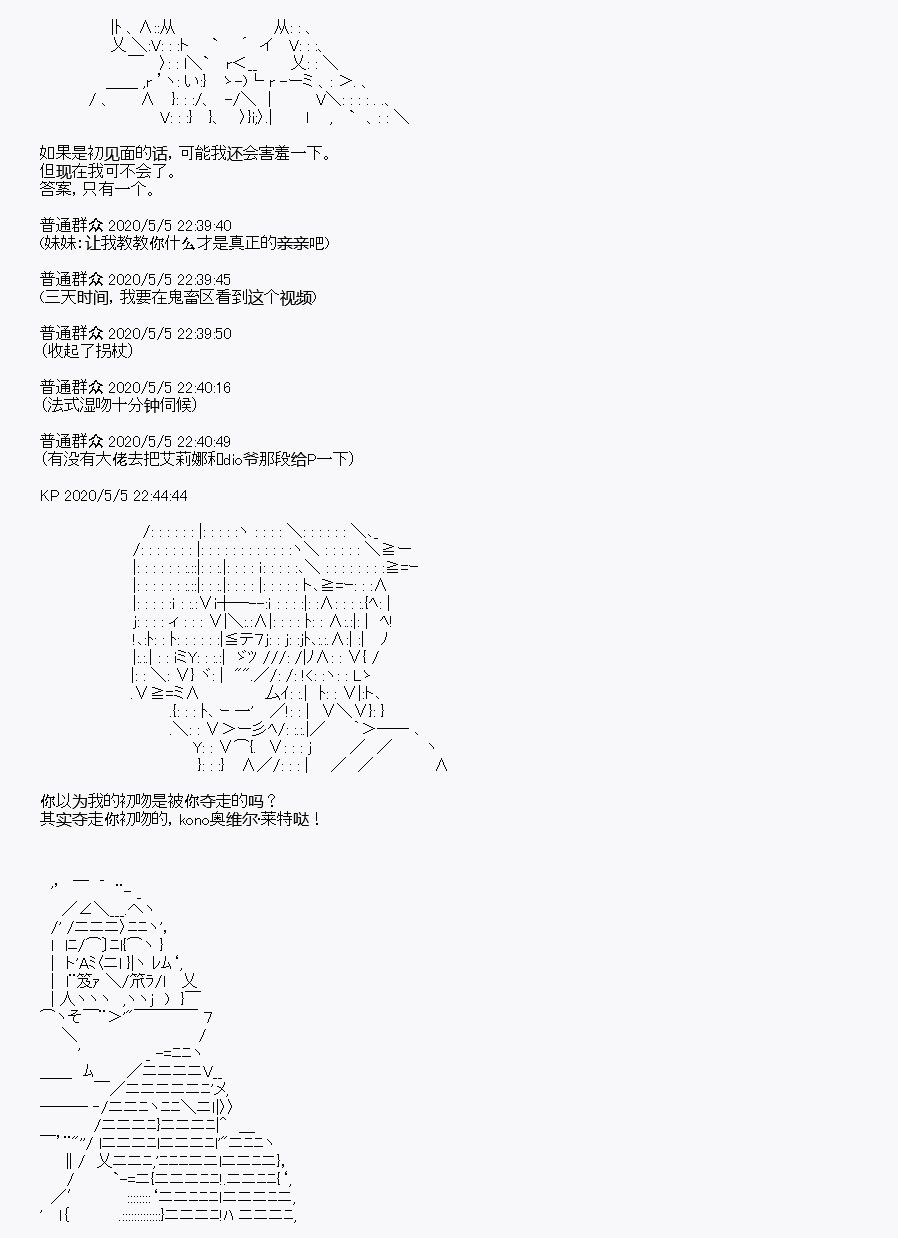 如果是初见面的话，可能我还会害羞一下。
但现在我可不会了。
答案，只有一个。
普通群众 2020/5/5 22:39:40
(妹妹：让我教教你什么才是真正的亲亲吧)
普通群众 2020/5/5 22:39:45
(三天时间，我要在鬼畜区看到这个视频)
普通群众 2020/5/5 22:39:50
(收起了拐杖)
普通群众 2020/5/5 22:40:16
(法式湿吻十分钟伺候)
普通群众 2020/5/5 22:40:49
(有没有大佬去把艾莉娜和dio爷那段给P一下)
KP 2020/5/5 22:44:44
你以为我的初吻是被你夺走的吗？
其实夺走你初吻的，kono奥维尔·莱特哒！